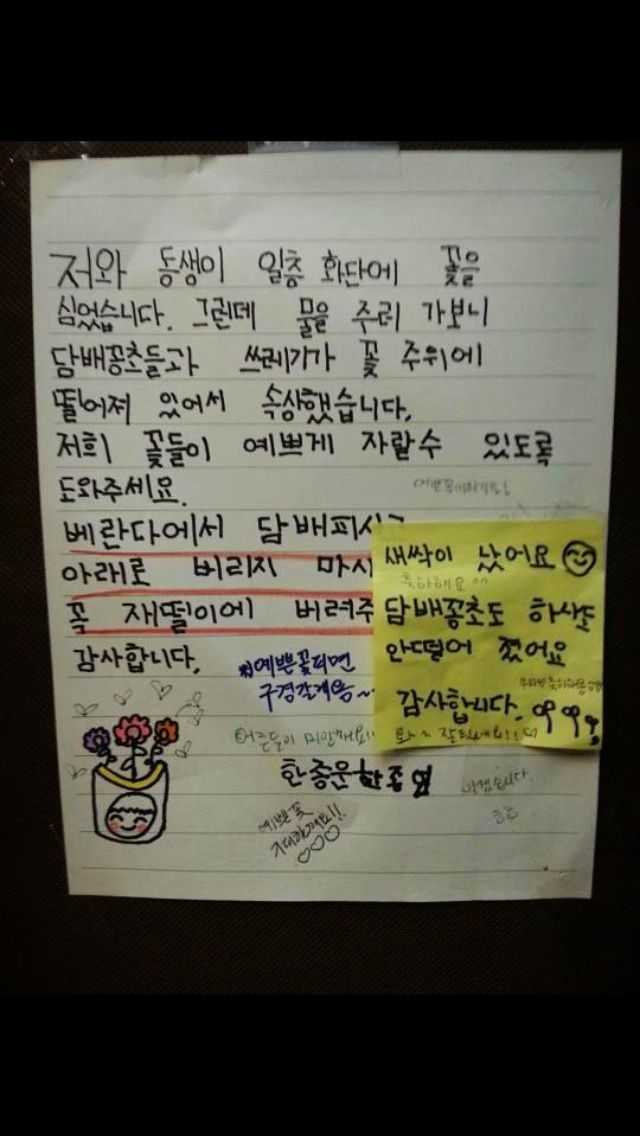 저와 동생이 일층 화단에 꽃을
심었습니다. 그런데 물을 주러 가보니
담배꽁초들과 쓰레기가 꽃 주위에
떨어져 있어서 속상했습니다.
저희 꽃들이 예쁘게 자랄수 있도록
도와주세요.
베란다에서 담배피시고
아래로 버리지 마시
꼭 재떨이에 버려주
감사합니다.
예쁜꽃피면
구경갈게욤~
어른들이 미안해요!!
한종운 한종엽
예쁜꽃
기대할게요!!
알겠습니다.
새싹이 났어요
축하해요 ^^
담배꽁초도 하나도
안떨어 졌어요
감사합니다.